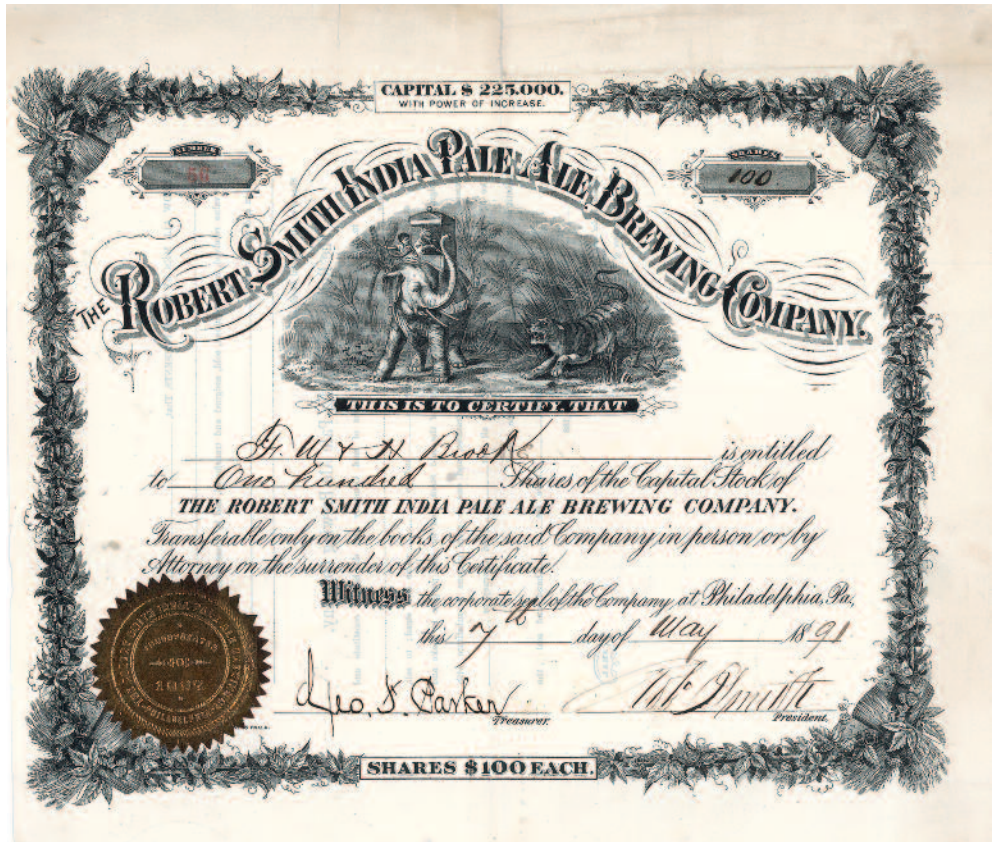 CAPITAL $ 225.000.
WITH POWER OF INCREASE.
NUMBER
SHARES
100.
THE ROBERT SMITH INDIA PALE ALE BREWING COMPANY.
THIS IS TO CERTIFY, THAT
F. W & H Brook is entitled
to One hundred Shares of the Capital Stock of
THE ROBERT SMITH INDIA PALE ALE BREWING COMPANY.
Transferable only on the books of the said Company in person or by
Attorney on the surrender of this Certificate.
Witness the corporate seal of the Company, at Philadelphia, Pa,
this 7th day of May 1891
Geo. F. Parker
Treasurer.
President.
INCORPORATED
PHILADELPHIA
SHARES $100 EACH.